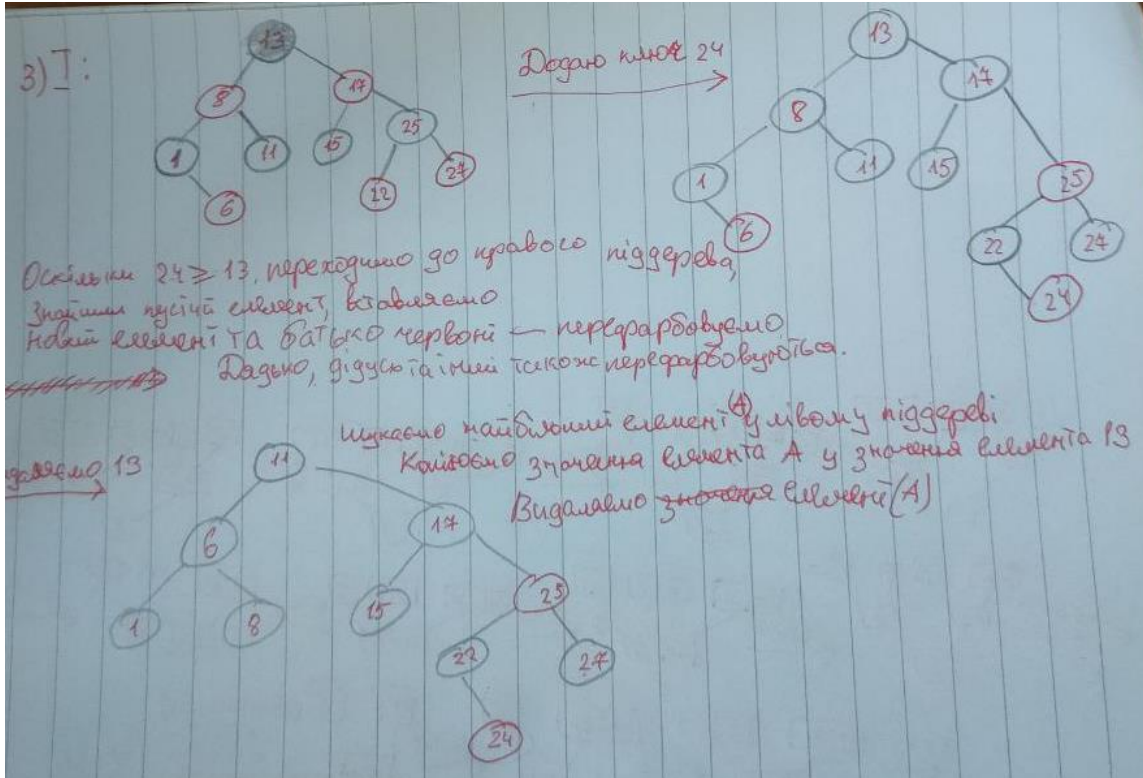 3) I:
13
8 17
1 11 15 25
6 22 27
Додаю ключ 24
13
8 17
1 11 15 25
6 22 27
24
Оскільки 24 ≥ 13, переходимо до правого піддерева,
Знайшли пустий елемент, вставляємо
Новий елемент та батько червоні — перефарбовуємо
Дядько, дідусь та інші також перефарбовуються.
Шукаємо найбільший елемент (A) у лівому піддереві
Копіюємо значення елемента A у значення елемента 13
Видаляємо значення елемент (A)
даляємо 13
11
6 17
1 8 15 25
22 27
24